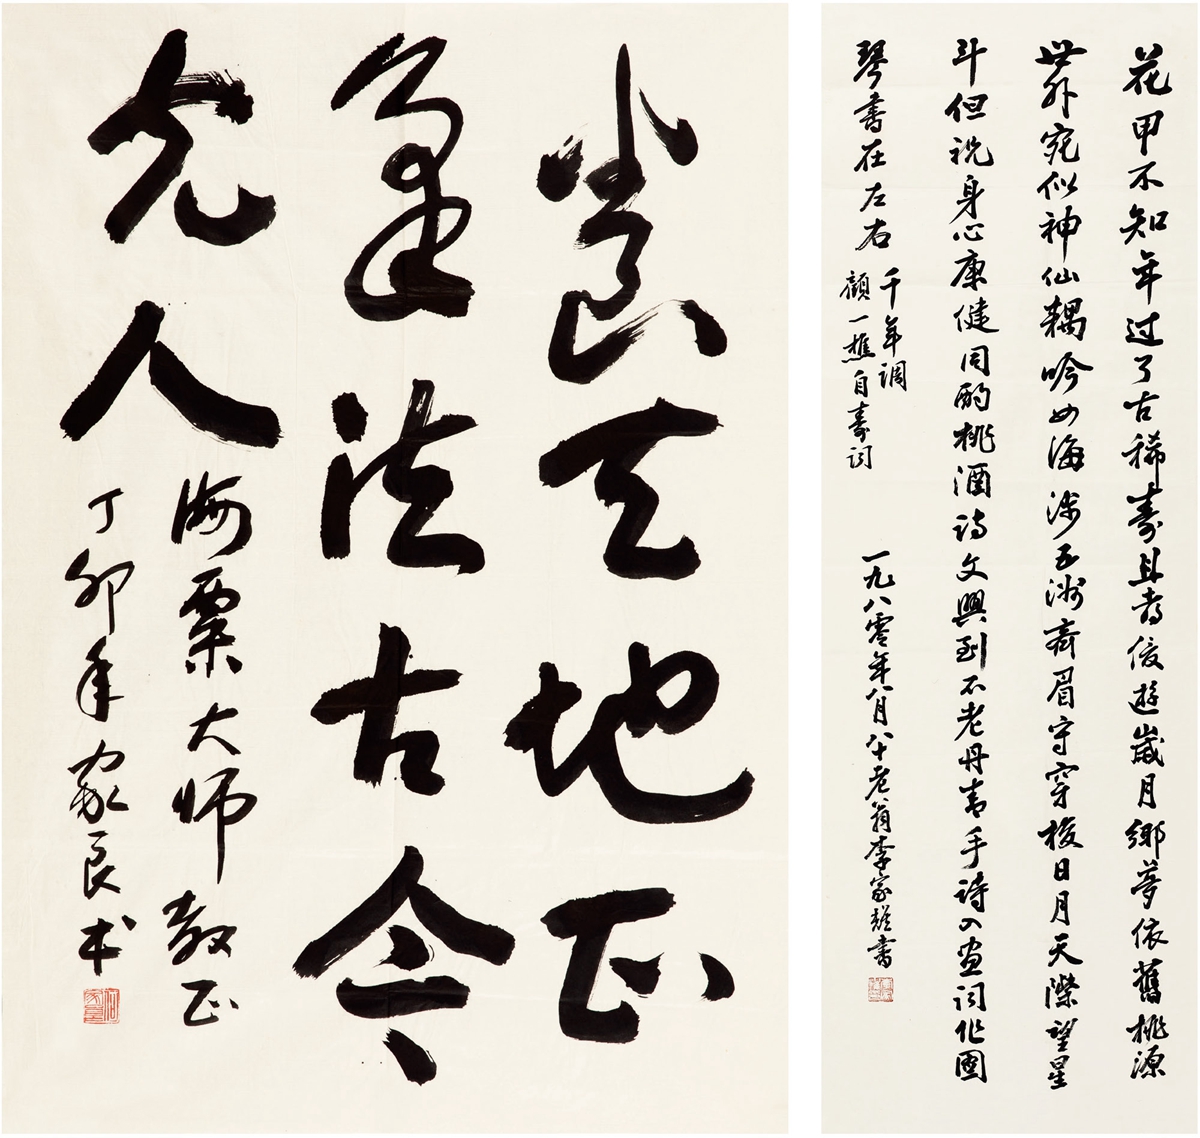 养天地正
氣法古今
完人
海粟大师教正
丁卯年家良书
花甲不知年过了古稀寿且耆俊遊歲月鄉夢依舊桃源
世外宛似神仙耦吟四海涉五洲齐眉守穿梭日月天際望星
斗但祝身心康健同酌桃酒诗文興到不老丹青手詩入画词作图
琴書在左右
千年调
顧一樵自寿词
一九八零年八月八十老翁李家耀書